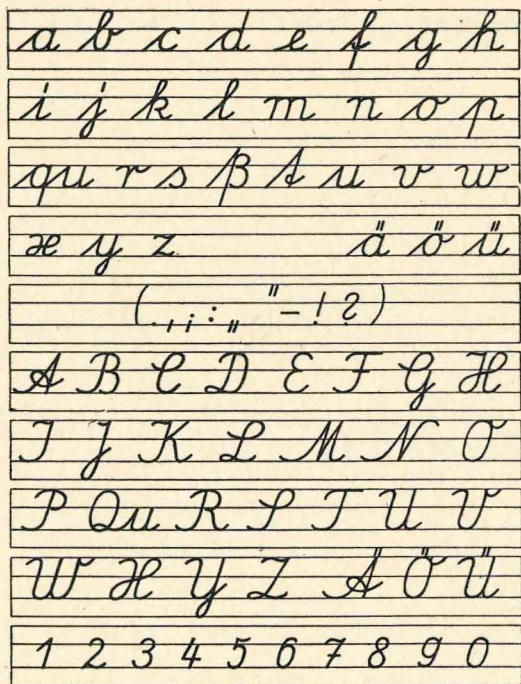 a b c d e f g h
i j k l m n o p
qu r s ß t u v w
x y z ä ö ü
( . , ; : „ " – ! ? )
A B C D E F G H
I J K L M N O
P Qu R S T U V
W X Y Z Ä Ö Ü
1 2 3 4 5 6 7 8 9 0